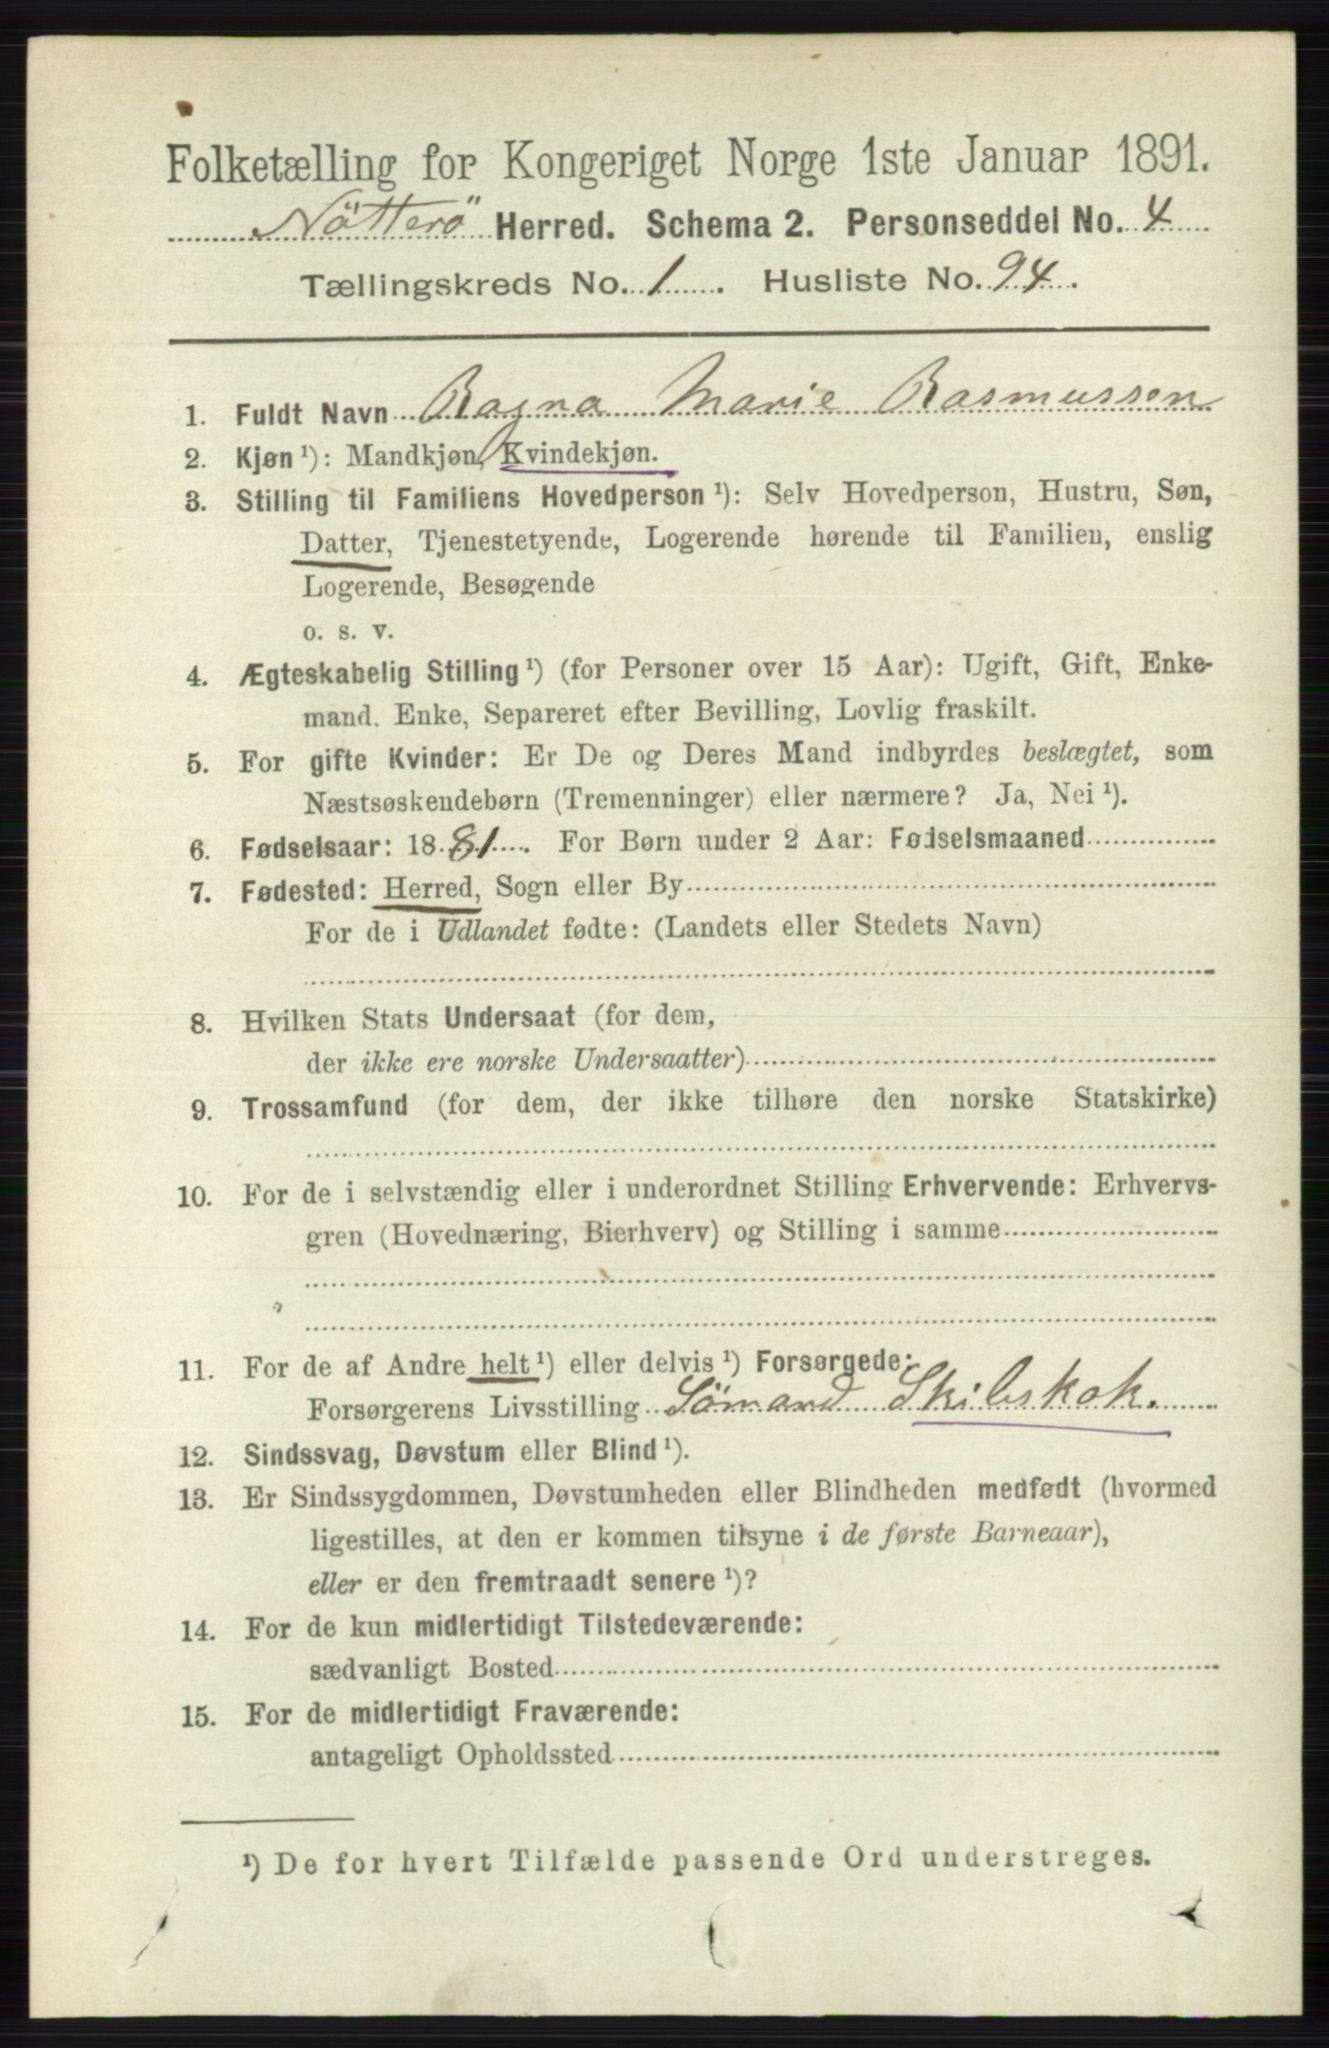 Folketælling for Kongeriget Norge 1ste Januar 1891.
Nötterö Herred. Schema 2. Personseddel No. 4
Tællingskreds No. 1. Husliste No. 94.
1. Fuldt Navn Ragna Marie Rasmussen
2. Kjøn ¹): Mandkjøn, Kvindekjøn.
3. Stilling til Familiens Hovedperson ¹): Selv Hovedperson, Hustru, Søn,
Datter, Tjenestetyende, Logerende hørende til Familien, enslig
Logerende, Besøgende
o. s. v.
4. Ægteskabelig Stilling ¹) (for Personer over 15 Aar): Ugift, Gift, Enke-
mand. Enke, Separeret efter Bevilling, Lovlig fraskilt.
5. For gifte Kvinder: Er De og Deres Mand indbyrdes beslægtet, som
Næstsøskendebørn (Tremenninger) eller nærmere? Ja, Nei ¹).
6. Fødselsaar: 1881. For Børn under 2 Aar: Fødselsmaaned
7. Fødested: Herred, Sogn eller By
For de i Udlandet fødte: (Landets eller Stedets Navn)
8. Hvilken Stats Undersaat (for dem,
der ikke ere norske Undersaatter)
9. Trossamfund (for dem, der ikke tilhøre den norske Statskirke)
10. For de i selvstændig eller i underordnet Stilling Erhvervende: Erhvervs-
gren (Hovednæring, Bierhverv) og Stilling i samme
11. For de af Andre helt ¹) eller delvis ¹) Forsørgede:
Forsørgerens Livsstilling Sömand Skibskok.
12. Sindssvag, Døvstum eller Blind ¹).
13. Er Sindssygdommen, Døvstumheden eller Blindheden medfødt (hvormed
ligestilles, at den er kommen tilsyne i de første Barneaar),
eller er den fremtraadt senere ¹)?
14. For de kun midlertidigt Tilstedeværende:
sædvanligt Bosted
15. For de midlertidigt Fraværende:
antageligt Opholdssted
¹) De for hvert Tilfælde passende Ord understreges.